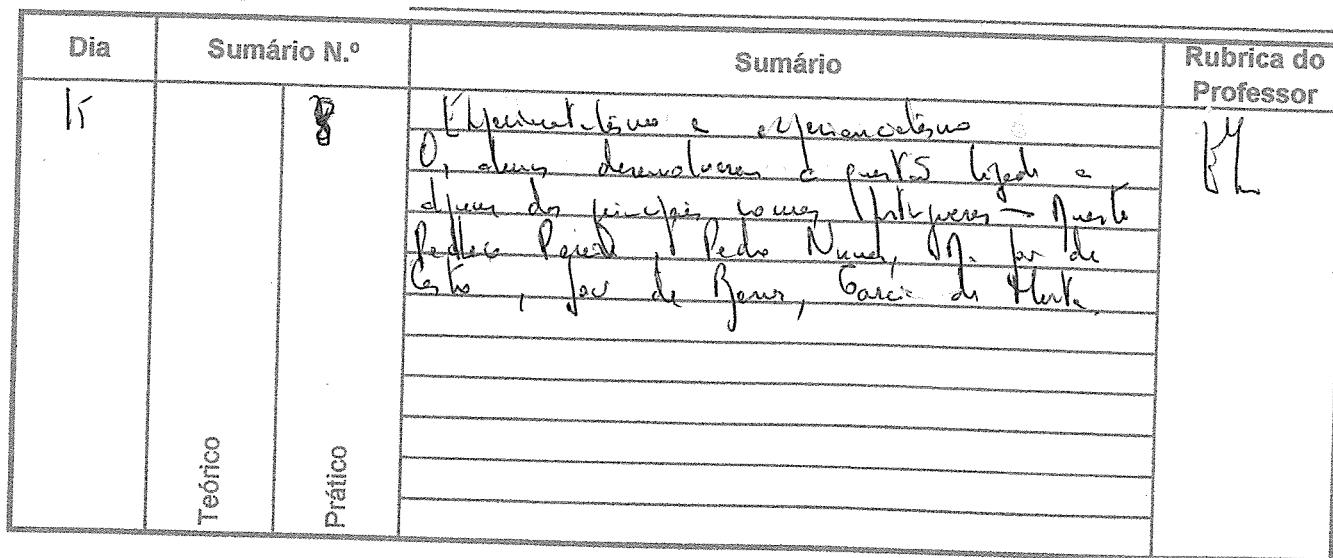 Dia Sumário N.º Sumário Rubrica do Professor
15 8 Experimentalismo e experiencialismo
Os alunos desenvolveram a questão ligada a
alguns dos principais nomes portugueses — Duarte
Pacheco Pereira, Pedro Nunes, D. João de
Castro, João de Barros, Garcia de Horta.
Teórico Prático